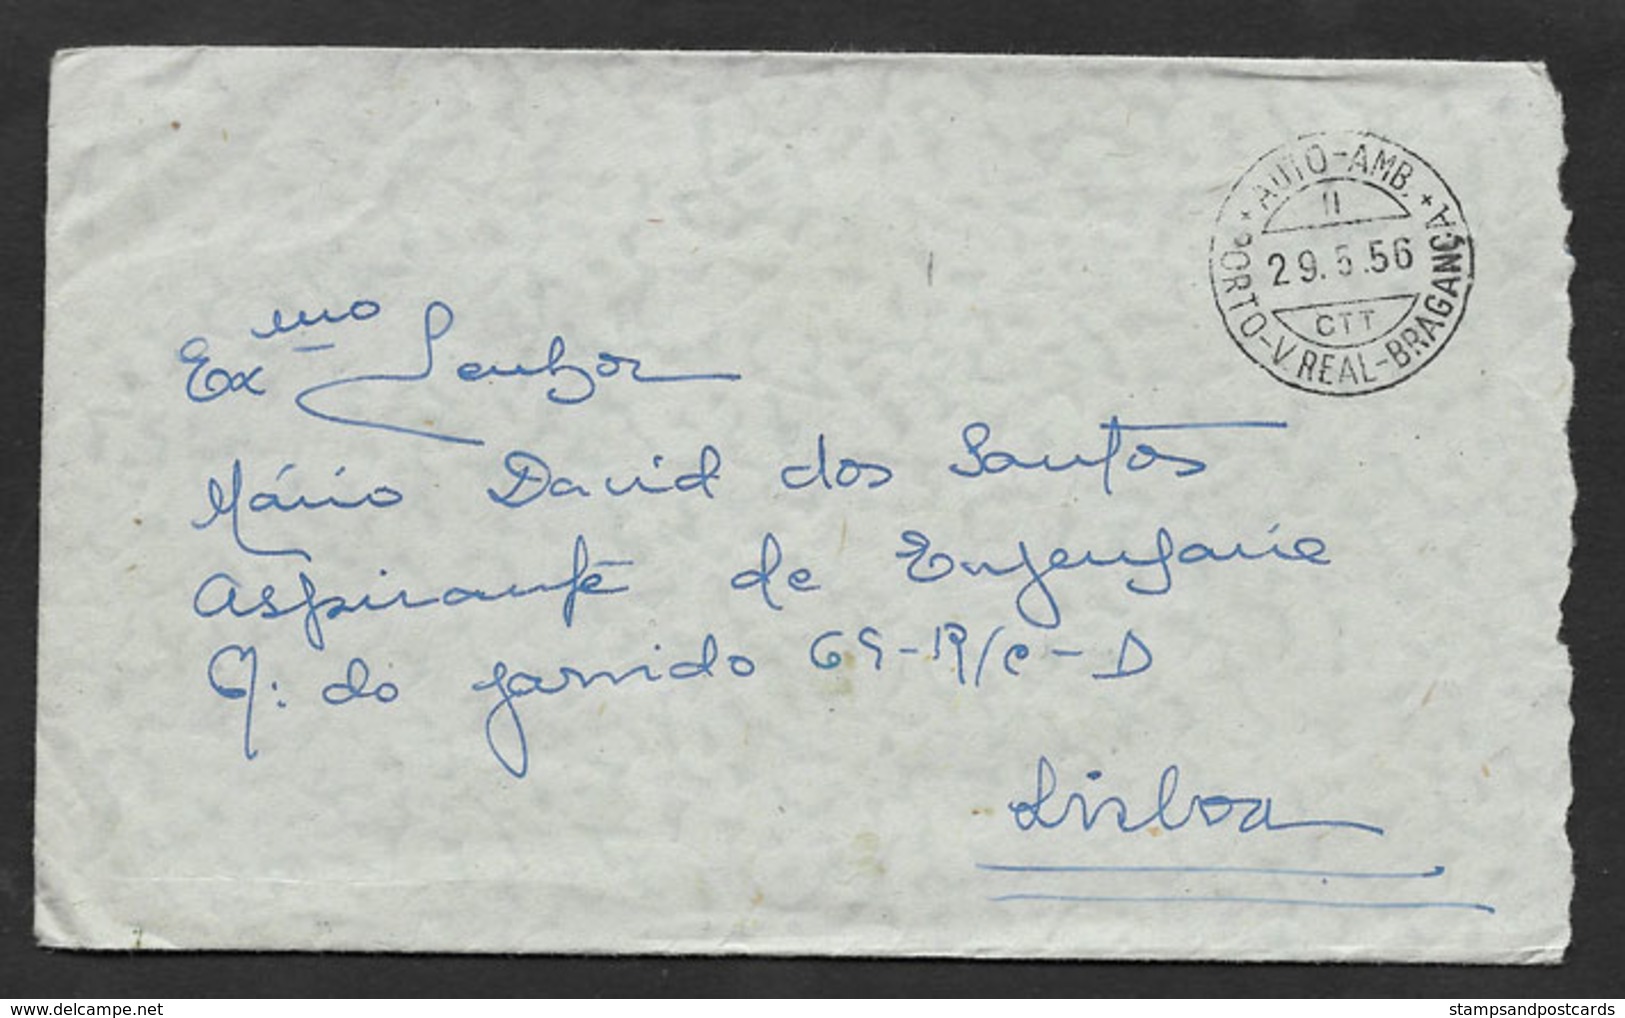 AUTO-AMB.
II
29.5.56
CTT
PORTO-V. REAL-BRAGANÇA
Ex.mo Senhor
Mário David dos Santos
Aspirante de Engenharia
Q: do garrido 69-R/c-D
Lisboa
stampsandpostcards